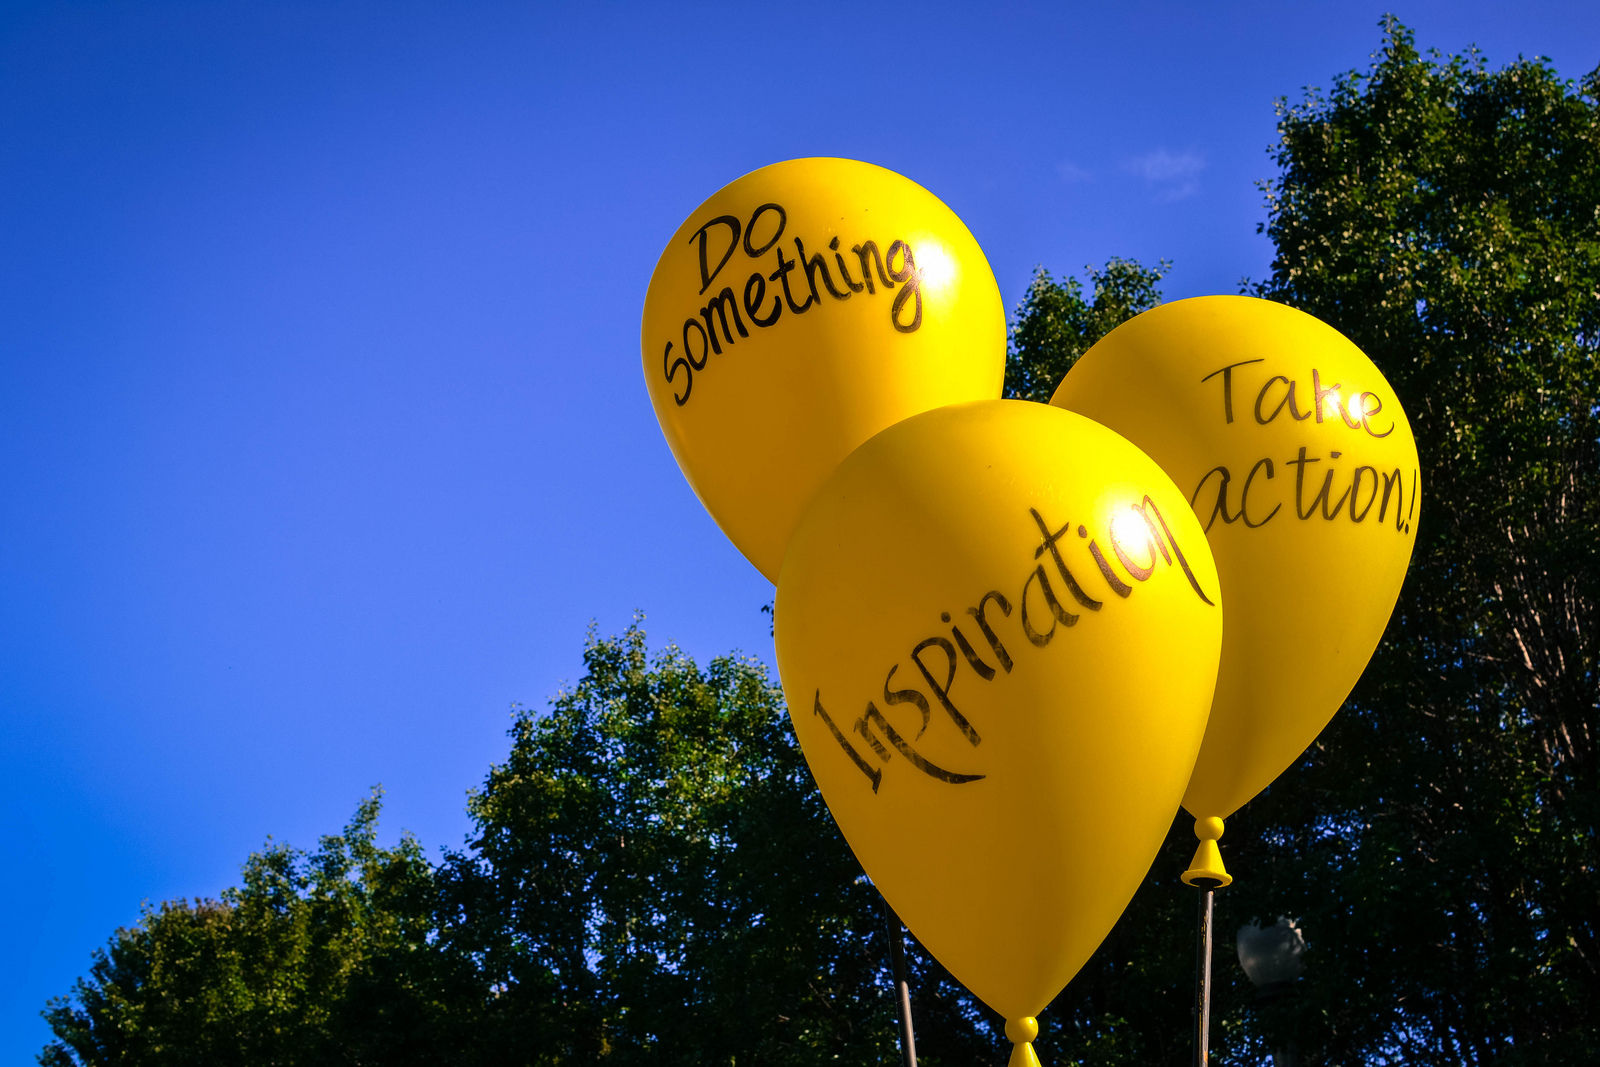 Do
something
Take
action!
Inspiration